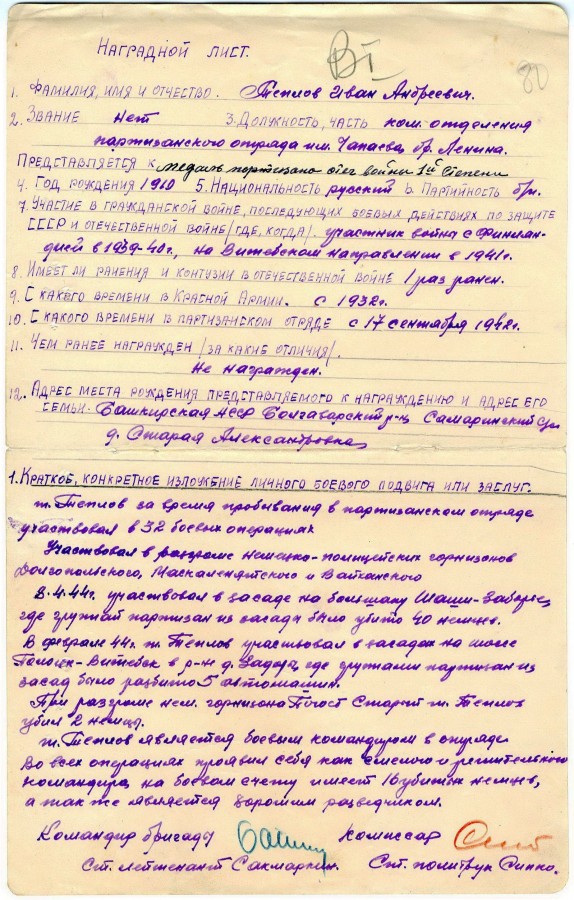 НАГРАДНОЙ ЛИСТ.
80
1. ФАМИЛИЯ, ИМЯ И ОТЧЕСТВО. Теплов Иван Андреевич.
2. ЗВАНИЕ нет 3. ДОЛЖНОСТЬ, ЧАСТЬ ком. отделения
партизанского отряда им. Чапаева, бр. Ленина.
ПРЕДСТАВЛЯЕТСЯ К медаль партизана отеч войны 1й степени
4. ГОД РОЖДЕНИЯ 1910 5. НАЦИОНАЛЬНОСТЬ русский 6. ПАРТИЙНОСТЬ
7. УЧАСТИЕ В ГРАЖДАНСКОЙ ВОЙНЕ, ПОСЛЕДУЮЩИХ БОЕВЫХ ДЕЙСТВИЯХ ПО ЗАЩИТЕ
СССР И ОТЕЧЕСТВЕННОЙ ВОЙНЕ /ГДЕ, КОГДА/. участник война с Финлан-
дией в 1939-40г., на Витебском направлении в 1941г.
8. ИМЕЕТ ЛИ РАНЕНИЯ И КОНТУЗИИ В ОТЕЧЕСТВЕННОЙ ВОЙНЕ 1 раз ранен.
9. С КАКОГО ВРЕМЕНИ В КРАСНОЙ АРМИИ. с 1932г.
10. С КАКОГО ВРЕМЕНИ В ПАРТИЗАНСКОМ ОТРЯДЕ с 17 сентября 1942г.
11. ЧЕМ РАНЕЕ НАГРАЖДЕН /ЗА КАКИЕ ОТЛИЧИЯ/.
Не награжден.
12. АДРЕС МЕСТА РОЖДЕНИЯ ПРЕДСТАВЛЯЕМОГО К НАГРАЖДЕНИЮ И АДРЕС ЕГО
СЕМЬИ. Башкирская АССР р-н, Самаринский
д. Старая Александровка
1. КРАТКОЕ, КОНКРЕТНОЕ ИЗЛОЖЕНИЕ ЛИЧНОГО БОЕВОГО ПОДВИГА ИЛИ ЗАСЛУГ.
т. Теплов за время пробывания в партизанском отряде
участвовал в 32 боевых операциях
Участвовал в разгроме немецко-полицейских горнизонов
Долгопольского, Маскаленятского и Вайханского
8.4.44г. участвовал в засаде на большаку Шаши-Заборье,
где группой партизан из засады было убито 40 немцев.
В феврале 44г. т. Теплов участвовал в засадах на шоссе
Полоцк-Витебск в р-не д. Задора, где группами партизан из
засад было разбито 5 автомашин.
При разгроме нем. горнизона Погост Старый т. Теплов
убил 2 немца.
т. Теплов является боевым командиром в отряде
Во всех операциях проявил себя как смелого и решительного
командира, на боевом счету имеет 16 убитых немцев,
а так же является хорошим разведчиком.
Командир бригады Комиссар
Ст. лейтенант Сакмаркин. Ст. политрук Сипко.